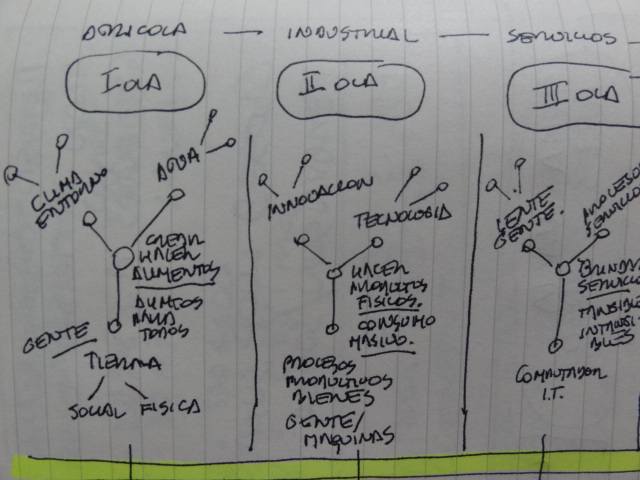 AGRICOLA — INDUSTRIAL — SERVICIOS
I OLA
II OLA
III OLA
CLIMA
ENTORNO
AGUA
CREAR
HACER
ALIMENTOS
PARA
TODOS
GENTE
TIERRA
SOCIAL FISICA
INNOVACION
TECNOLOGIA
HACER
PRODUCTOS
FISICOS.
CONSUMO
MASIVO.
PROCESOS
PRODUCTIVOS
BIENES
GENTE/
MAQUINAS
GENTE
GENTE.
PROCESOS
SERVICIO
SERVICIO
TANGIBL
INTANGI-
BLES
COMPUTADOR
I.T.